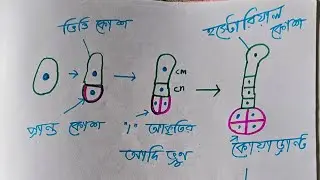 ভিত্তি কোশ
হস্টোরিয়াল
কোশ
cm
cn
প্রান্ত কোশ
"I" আকৃতির
আদি ভ্রূণ
কোয়াড্রান্ট